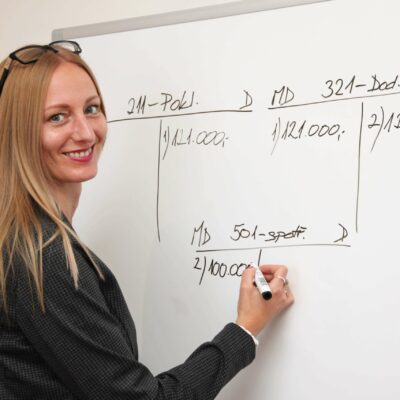 211-Pokl. D
MD 321-Dod.
1) 121.000,-
1) 121.000,-
2) 12
MD 501-spotř. D
2) 100.00